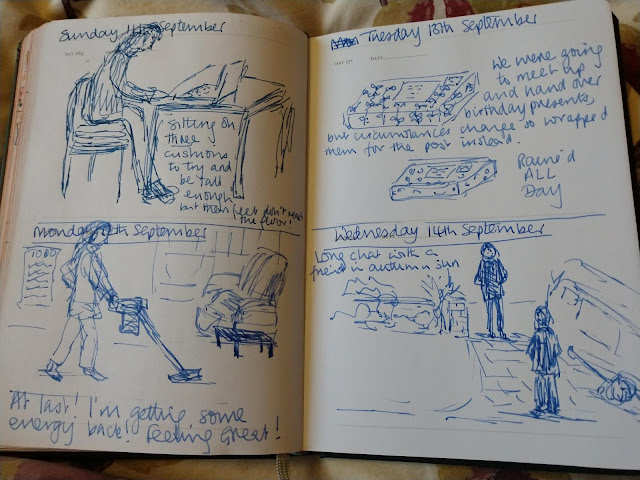 Sunday 11th September
DAY 123
Sitting on
three
cushions
to try and
be tall
enough
but then feet don't meet
the floor!
Monday 12th September
TO DO
At last! I'm getting some
energy back! Feeling Great!
Tuesday 13th September
DAY 127
DATE
We were going
to meet up
and hand over
birthday presents,
but circumstances change so wrapped
them for the post instead.
Raine'd
ALL
Day
Wednesday 14th September
Long chat with a
friend in autumn sun